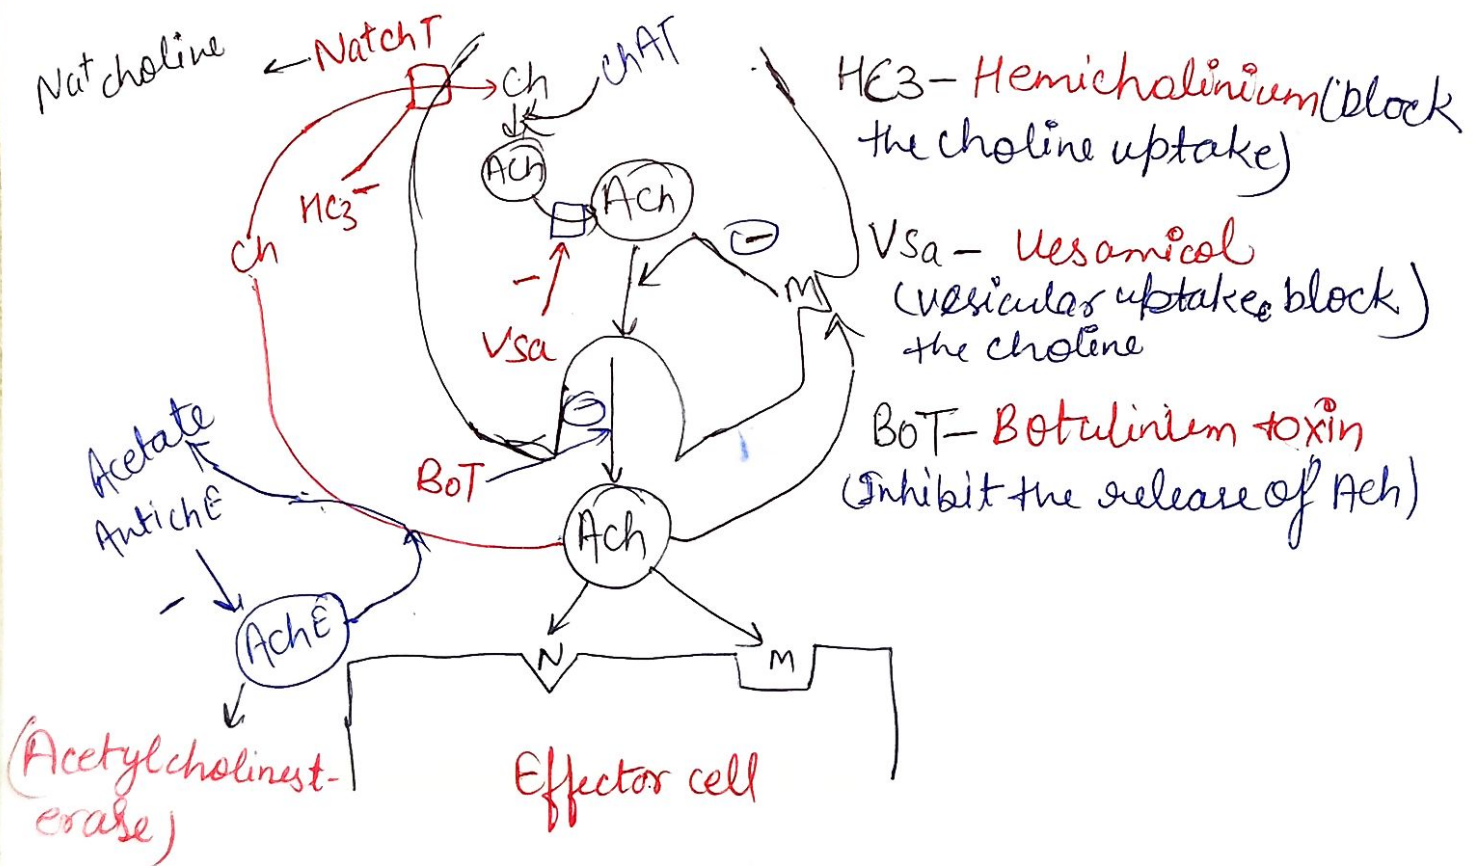 Na⁺choline ← NatchT
Ch
chAT
Ach
Ach
HC3⁻
Ch
–
Vsa
–
M
–
BoT
Ach
Acetate
AntichE
–
AchE
(Acetylcholinest-
erase)
N
M
Effector cell
HC3 – Hemicholinium (block
the choline uptake)
Vsa – Vesamicol
(vesicular uptake block)
the choline
BoT – Botulinium toxin
(Inhibit the release of Ach)